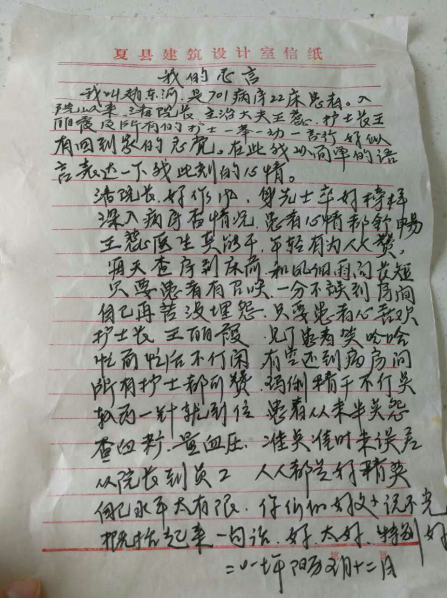 夏县建筑设计室信纸
我的心言
我叫 东河,是701病房22床患者。入
院以来,浩院长,主治大夫王蕊,护士长王
丽霞及所有的护士一举一动一言行好似
有回到家的感觉。在此我以简单的语
言表达一下我此刻的心情。
浩院长,好作风,身先士卒好榜样
深入病房查情况,患者心情都舒畅
王蕊医生真能干,年轻有为人人赞,
每天查房到床前 和风细雨问长短
只要患者有召唤,一分不误到房间
自己再苦没埋怨,只要患者心喜欢
护士长 王丽霞 见了患者笑哈哈
忙前忙后不行闲 有空还到病房间
所有护士都的赞 精干不行
一针就到位 患者从来半
查血 量血压,准 准时来误差
从院长到员工 人人都是好精英
自己水平太有限,你们的好处说不完
概括起来一句话,好,太好,特别好
二0一七年 阳历 月十二日